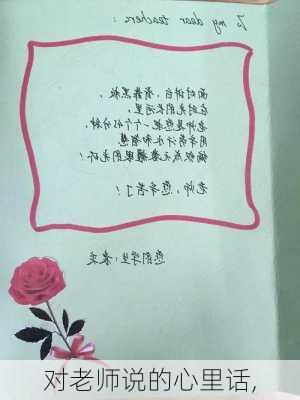 To my dear teacher:
面对讲台,背靠黑板,
在时光的长河里,
老师是您把一个个分钟,
用辛勤汗水和智慧
编织成无数的光环!
老师,您辛苦了!
您的学生:
对老师说的心里话,